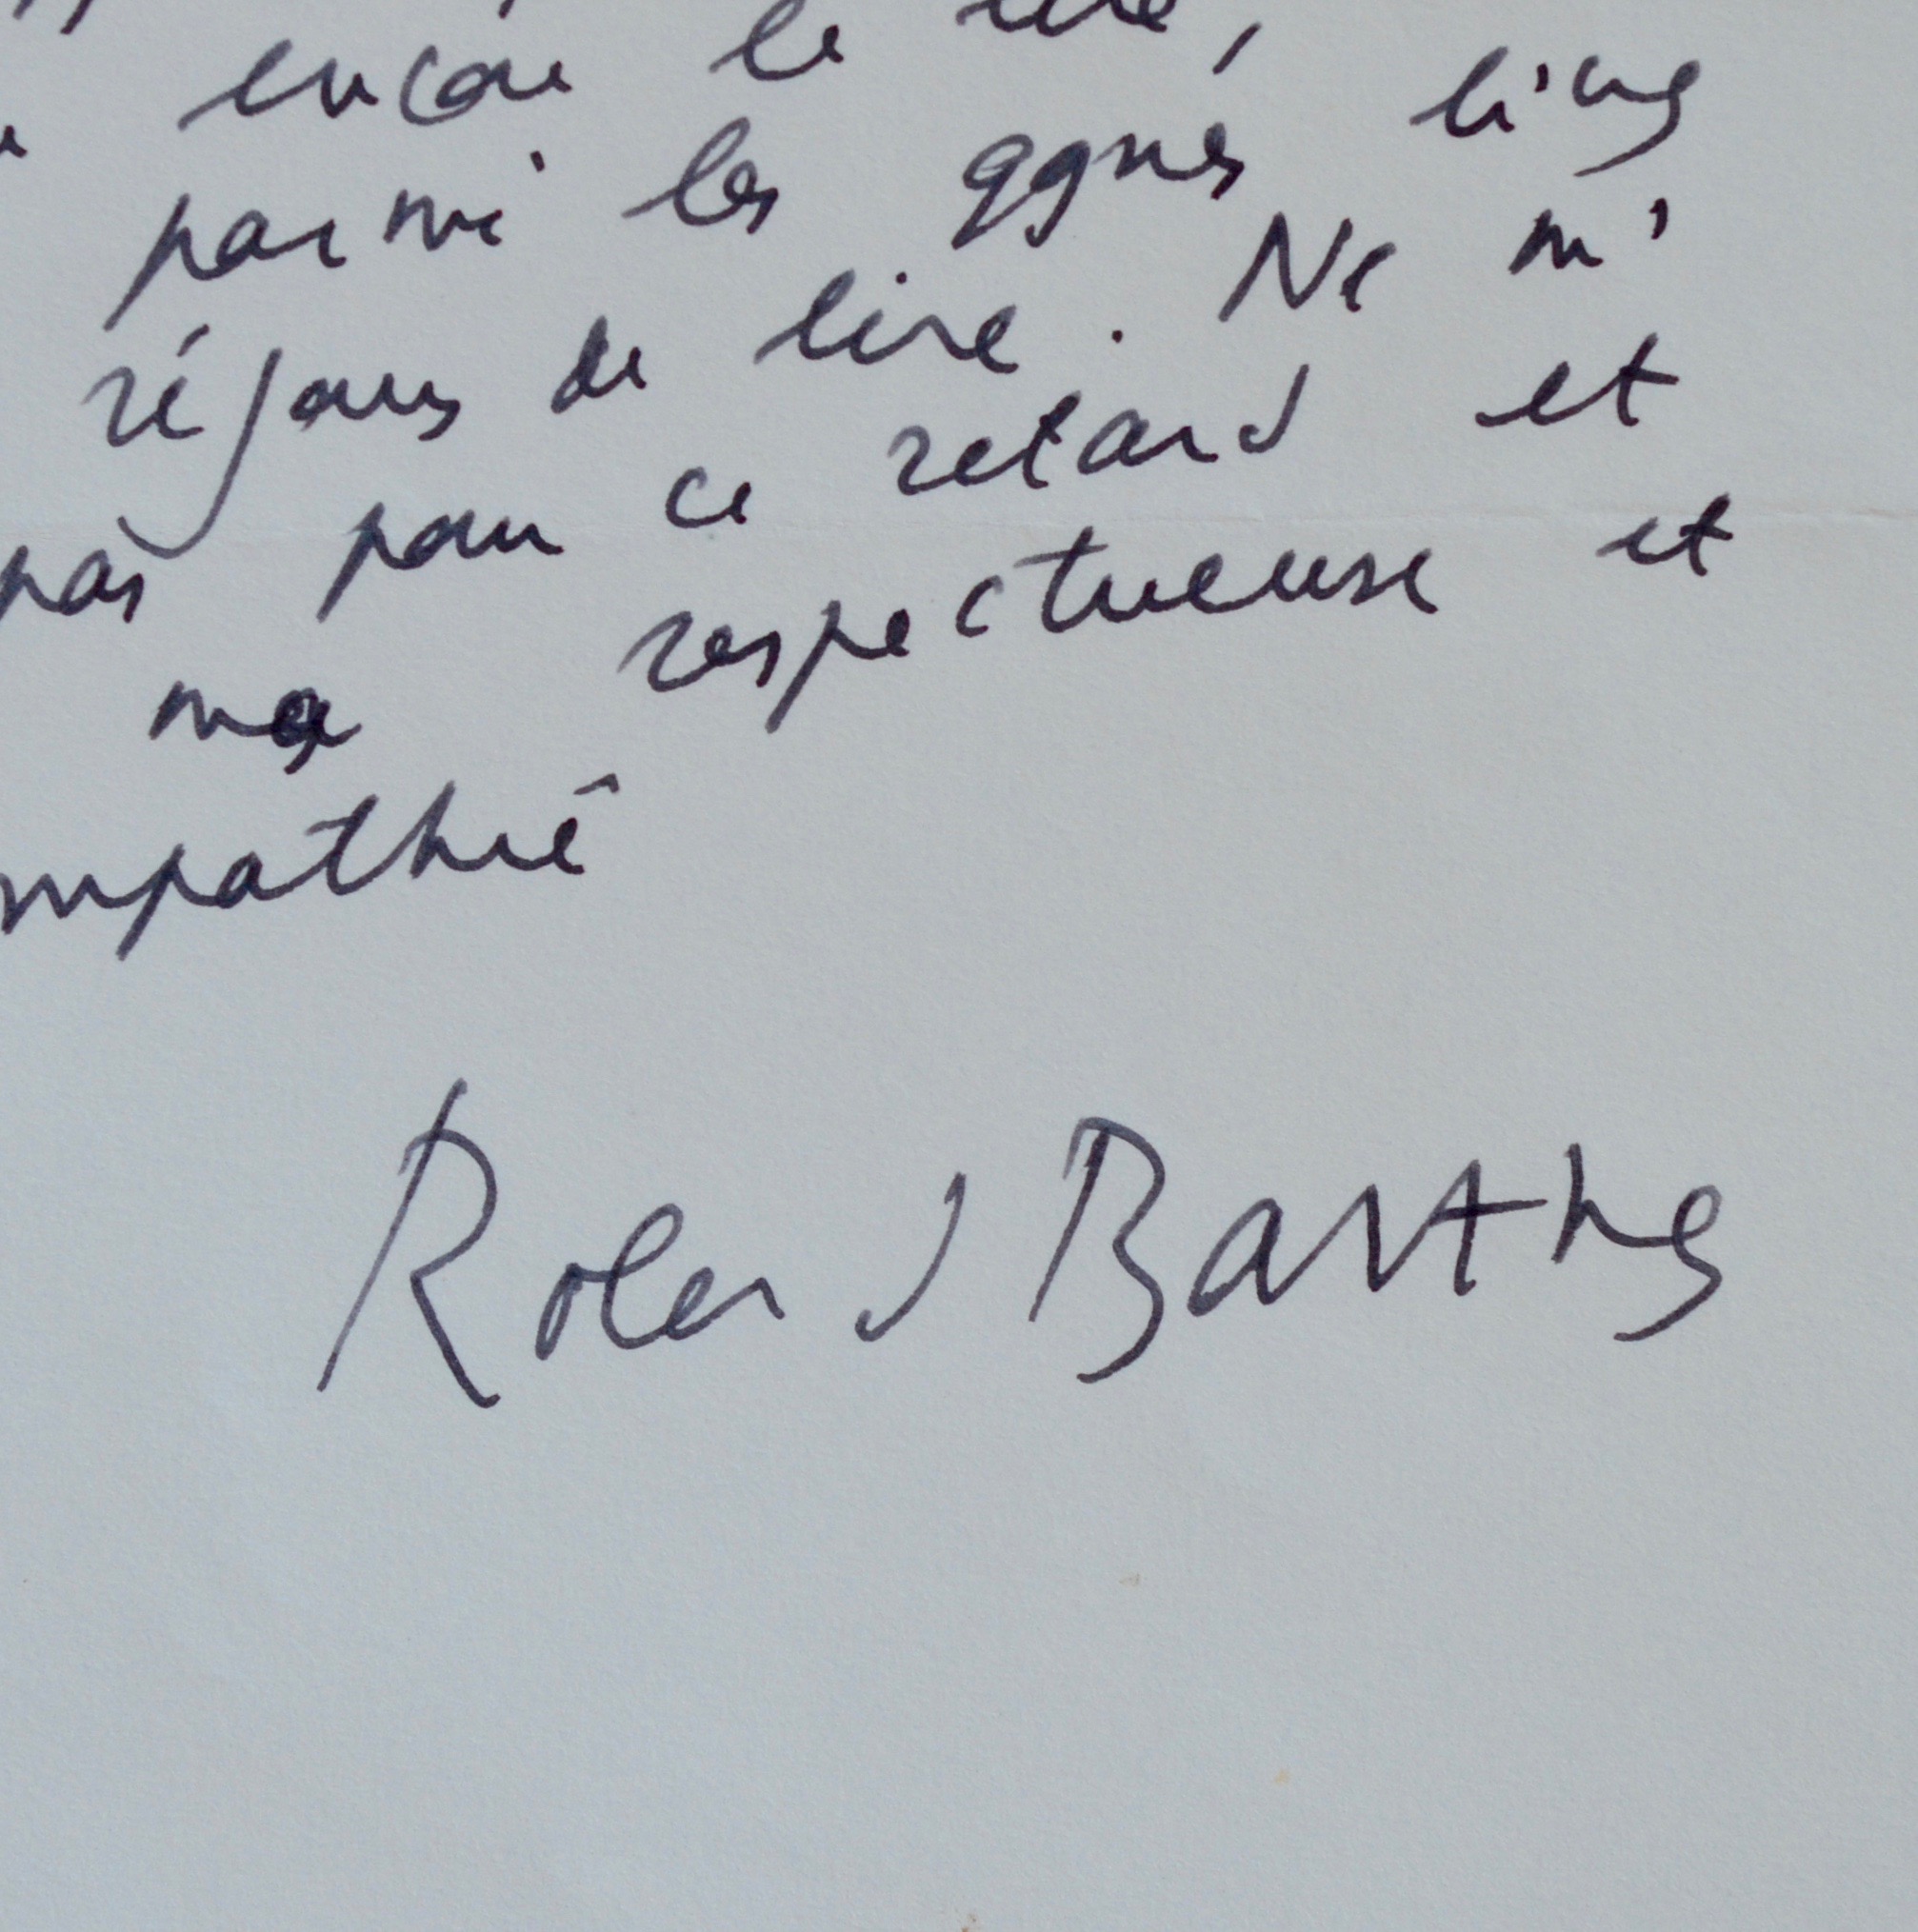 encore le lire,
parmi les qques livres
réjouis de lire. Ne m'
pas pour ce retard et et
ma respectueuse et
mpathie
Roland Barthes